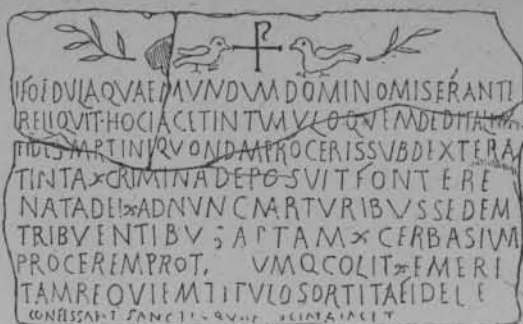 FOEDVLAQVAEMVNDVMDOMINOMISERANTI
RELIQVIT·HOCIACETINTVMVLOQVEMDEDITALM
FIDESMRTINIQVONDMPROCERISSVBDEXTERA
TINTA×CRIMINADEPOSVITFONTERE
NATADEI×ADNVNCMARTVRIBVSSEDEM
TRIBVENTIBV;APTAM×CERBASIVM
PROCEREMPROT, VMQCOLIT×EMERI
TAMREQVIEMTITVLOSORTITAFIDELE
CONFESSA SANCTI